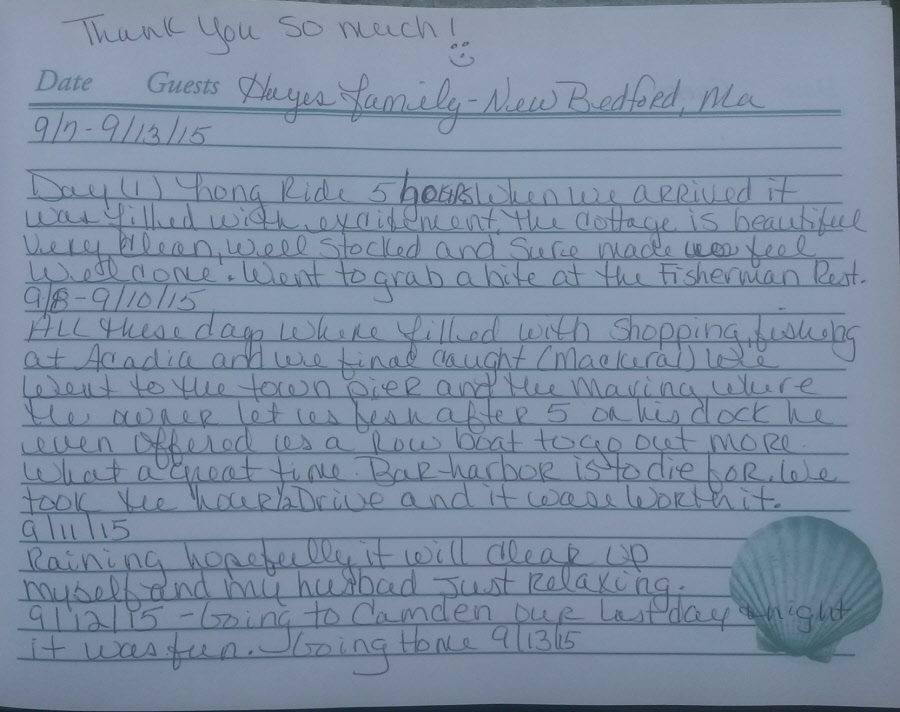 Thank you so much!
Date Guests Hayes family - New Bedford, Ma
9/7 - 9/13/15
Day (1) Long Ride 5 hours when we arrived it
was filled with excitement, the cottage is beautiful
very clean, well stocked and sure made us feel
Well done. Went to grab a bite at the Fisherman Rest.
9/8 - 9/10/15
All these days where filled with shopping, fishing
at Acadia and we final caught (Mackeral) We
went to the town pier and the Maring where
the owner let us fish after 5 on his dock he
even offered us a row boat to go out more.
What a great time. Bar harbor is to die for. We
took the hour 1/2 Drive and it was worth it.
9/11/15
Raining hopefully it will clear up
myself and my husbad just relaxing.
9/12/15 - Going to Camden our last day & night
it was fun. Going Home 9/13/15